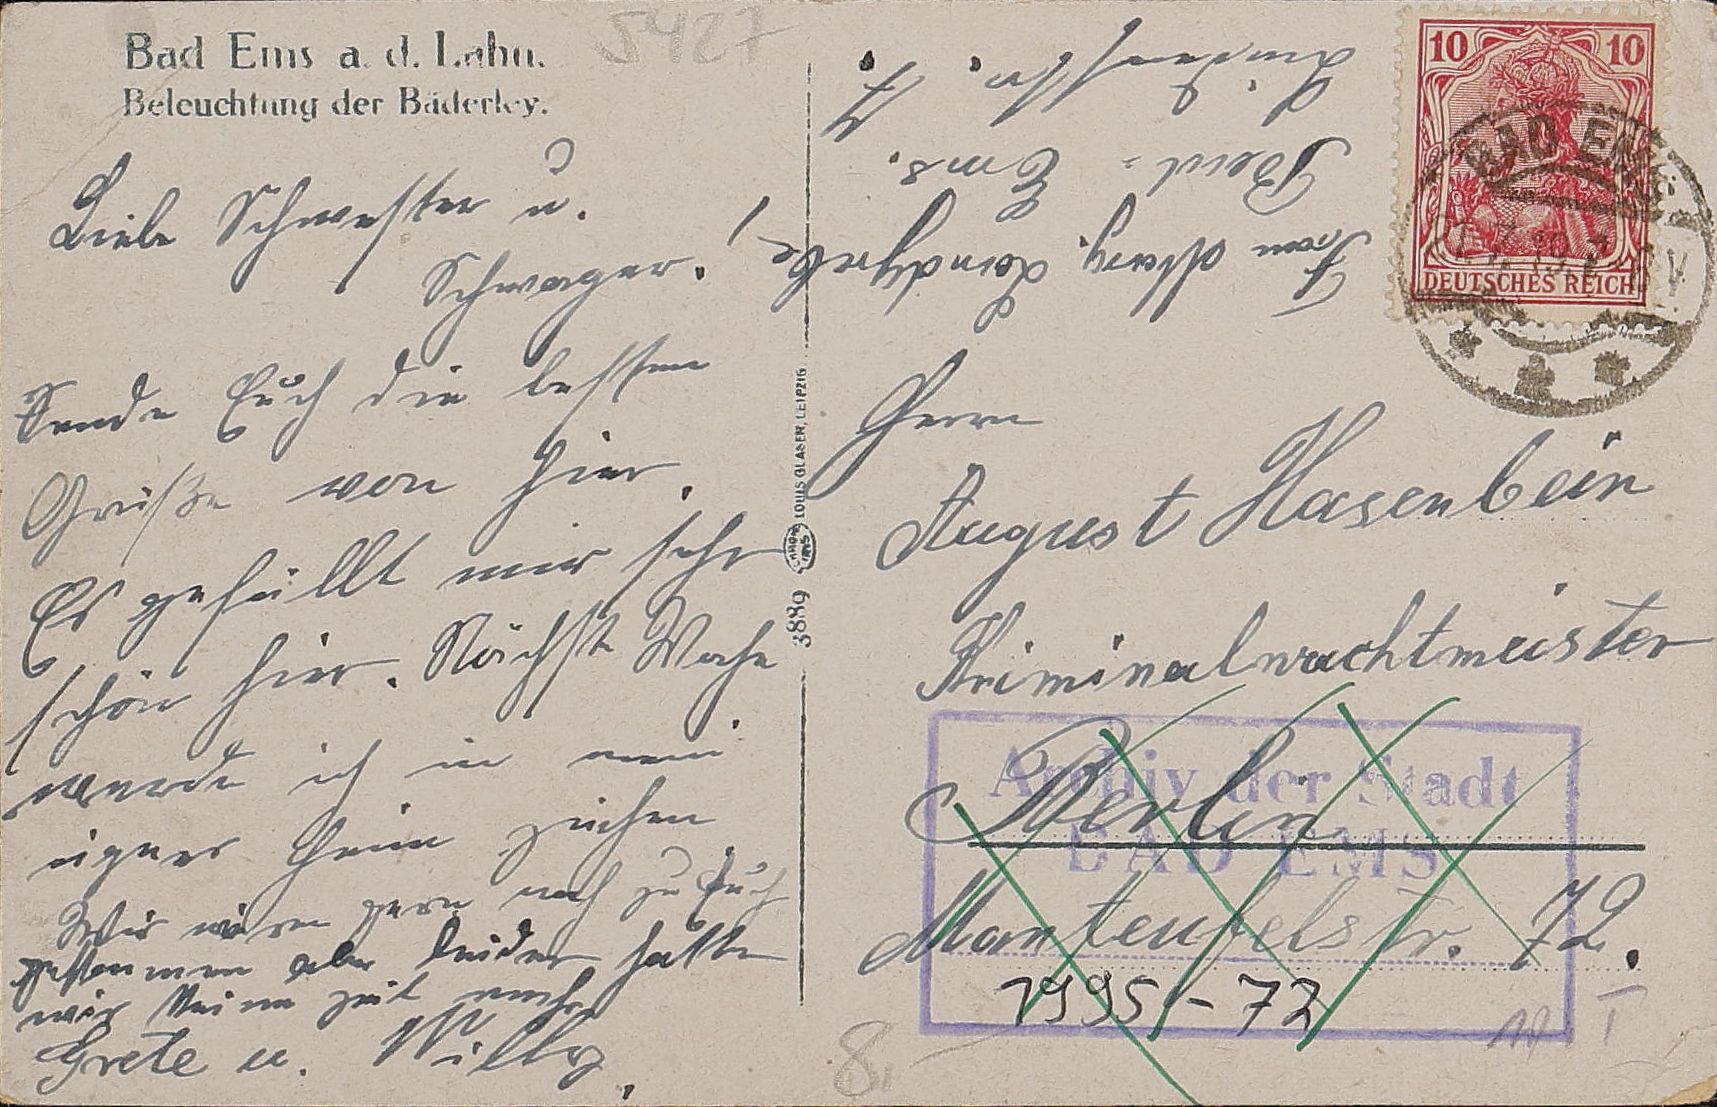 5427
Bad Ems a. d. Lahn.
Beleuchtung der Bäderley.
Liebe Schwester u.
Schwager. !
Sende Euch die besten
Grüße von hier.
Es gefällt mir sehr
schön hier. Nächste Woche
werde ich in mein
eignes Heim ziehen
Wir wären gern noch zu Euch
gekommen aber leider hatten
wir keine Zeit mehr
Grete u. Willy.
3889 LOUIS GLASER, LEIPZIG
Frau Marg. Landgrebe
Bad-Ems.
Lindenstr. 7.
10 10
DEUTSCHES REICH
BAD EMS
Herrn
August Hasenbein
Kriminalwachtmeister
Berlin
Manteufelstr. 72.
Archiv der Stadt
BAD EMS
1995-72
8.-